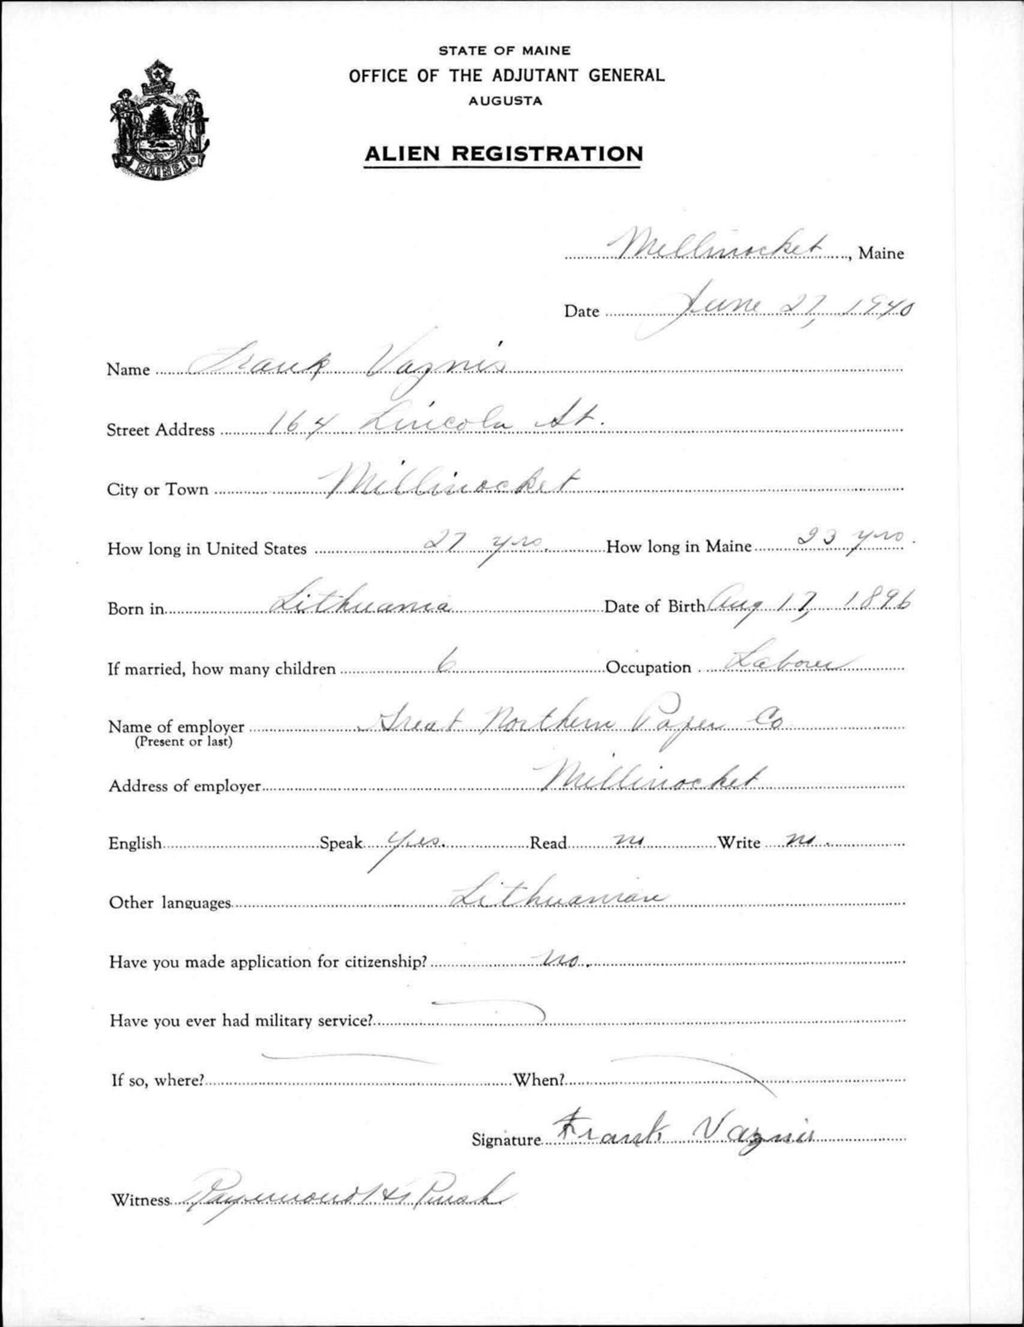 STATE OF MAINE
OFFICE OF THE ADJUTANT GENERAL
AUGUSTA
ALIEN REGISTRATION
MAINE
Millinocket, Maine
Date June 27, 1940
Name Frank Vaznis
Street Address 164 Lincoln St.
City or Town Millinocket
How long in United States 27 yrs. How long in Maine 23 yrs.
Born in Lithuania Date of Birth Aug 17, 1896
If married, how many children 6 Occupation Laborer
Name of employer Great Northern Paper Co
(Present or last)
Address of employer Millinocket
English Speak Yes. Read no Write no.
Other languages Lithuanian
Have you made application for citizenship? no.
Have you ever had military service?
If so, where? When?
Signature Frank Vaznis
Witness Raymond H.